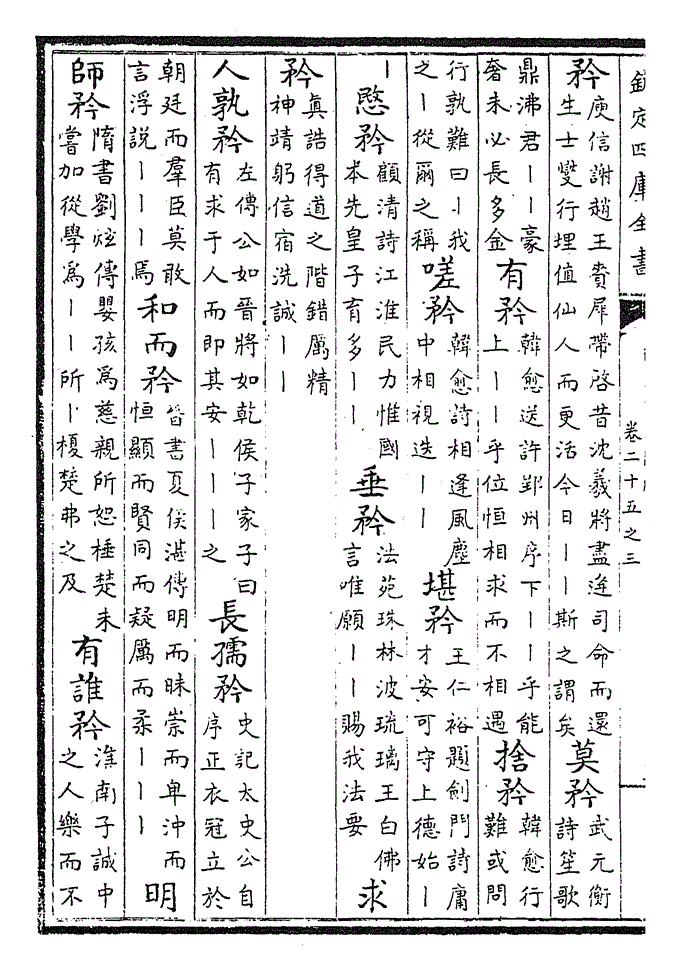 欽定四庫全書 卷二十五之三
矜 庾信謝趙王賚犀帶啓昔沈羲將盡逢司命而還生士燮行埋值仙人而更活今日丨丨斯之謂矣 莫矜 武元衡詩笙歌
鼎沸君丨丨豪奢未必長多金 有矜 韓愈送許郢州序下丨丨乎能上丨丨乎位恒相求而不相遇 捨矜 韓愈行難或問
行孰難曰丨我之丨從爾之稱 嗟矜 韓愈詩相逢風塵中相視迭丨丨 堪矜 王仁裕題劍門詩庸才安可守上德始丨
丨 愍矜 顧清詩江淮民力惟國本先皇子育多丨丨 垂矜 法苑珠林波琉璃王白佛言唯願丨丨賜我法要 求
矜 真誥得道之階錯厲精神靖躬信宿洗誠丨丨
人孰矜 左傳公如晉將如乾侯子家子曰有求于人而即其安丨丨丨之 長孺矜 史記太史公自序正衣冠立於
朝廷而羣臣莫敢言浮說丨丨丨焉 和而矜 晉書夏侯湛傳明而昧崇而卑沖而恒顯而賢同而疑厲而柔丨丨丨 明
師矜 隋書劉炫傳嬰孩為慈親所恕棰楚未嘗加從學為丨丨所丨榎楚弗之及 有誰矜 淮南子誠中之人樂而不